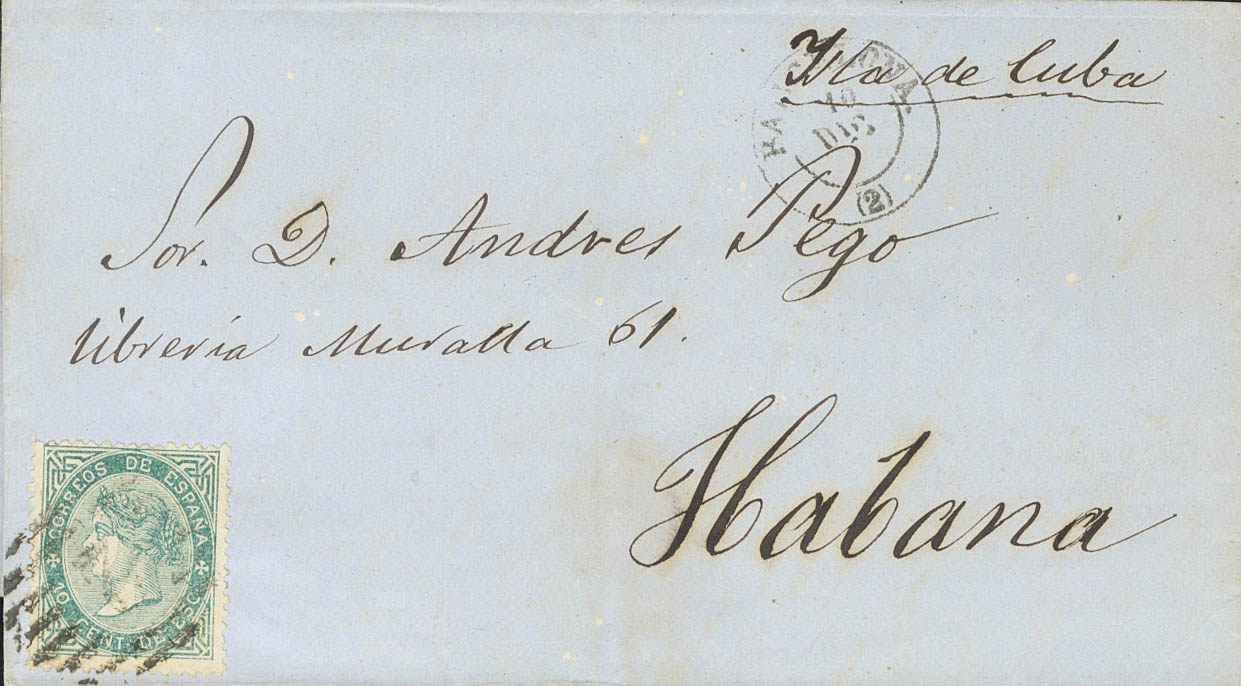 Isla de Cuba
BARCELONA.
10
DIC
(2)
Sor. D. Andres Pego
librería Muralla 61.
Habana
CORREOS DE ESPAÑA
10 CENT. DE ESC.